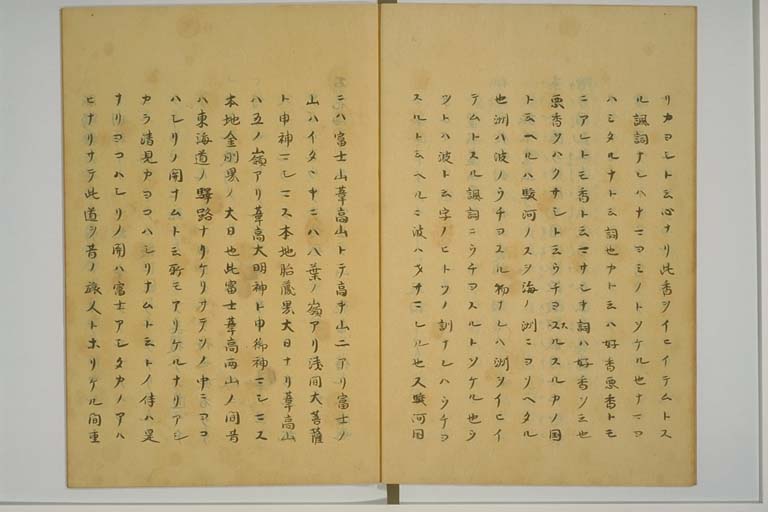 リカヨシト云心ナリ此香ヲイヒイテムトス
ル諷詞ナレハナニヨミノトツケル也ナマヨ
ハミタルナト云詞也カトミハ好香悪香トモ
ニアレトモ香ト云マサシキ詞ハ好香ヲ云也
悪香ヲハクサシト云ウチヨスルスルカノ国
ト云ヘルハ駿河ノスソ海ノ洲ニヨリヘタル
也洲ハ波ノウチヨスル物ナレハ洲ヲイヒイ
テムトスル諷詞ニウチヨスルトツケル也ウ
ツトハ波ト云字ノヒトツノ訓ナレハウチヨ
スルト云ヘルニ波ハアサマシルル也又駿河国
ニハ富士山葦高山トテ高キ山二アリ富士ノ
山ハイタヽキニハ八葉ノ嶺アリ浅間大菩薩
ト申神マシマス本地胎蔵界大日ナリ葦高山
ハ五ノ嶺アリ葦高大明神ト申御神マシマス
本地金剛界ノ大日也此富士葦高両山ノ間昔
ハ東海道ノ驛路ナリケリサテソノ中ニヨコ
ハシリノ関ナムト云所モアリケルナリアシ
カラ清見カヨコハシリナムト云トノ侍ハ是
ナリヨコハシリノ関ハ富士アシタカノアハ
ヒナリサテ此道ヲ昔ノ旅人トホリケル間重